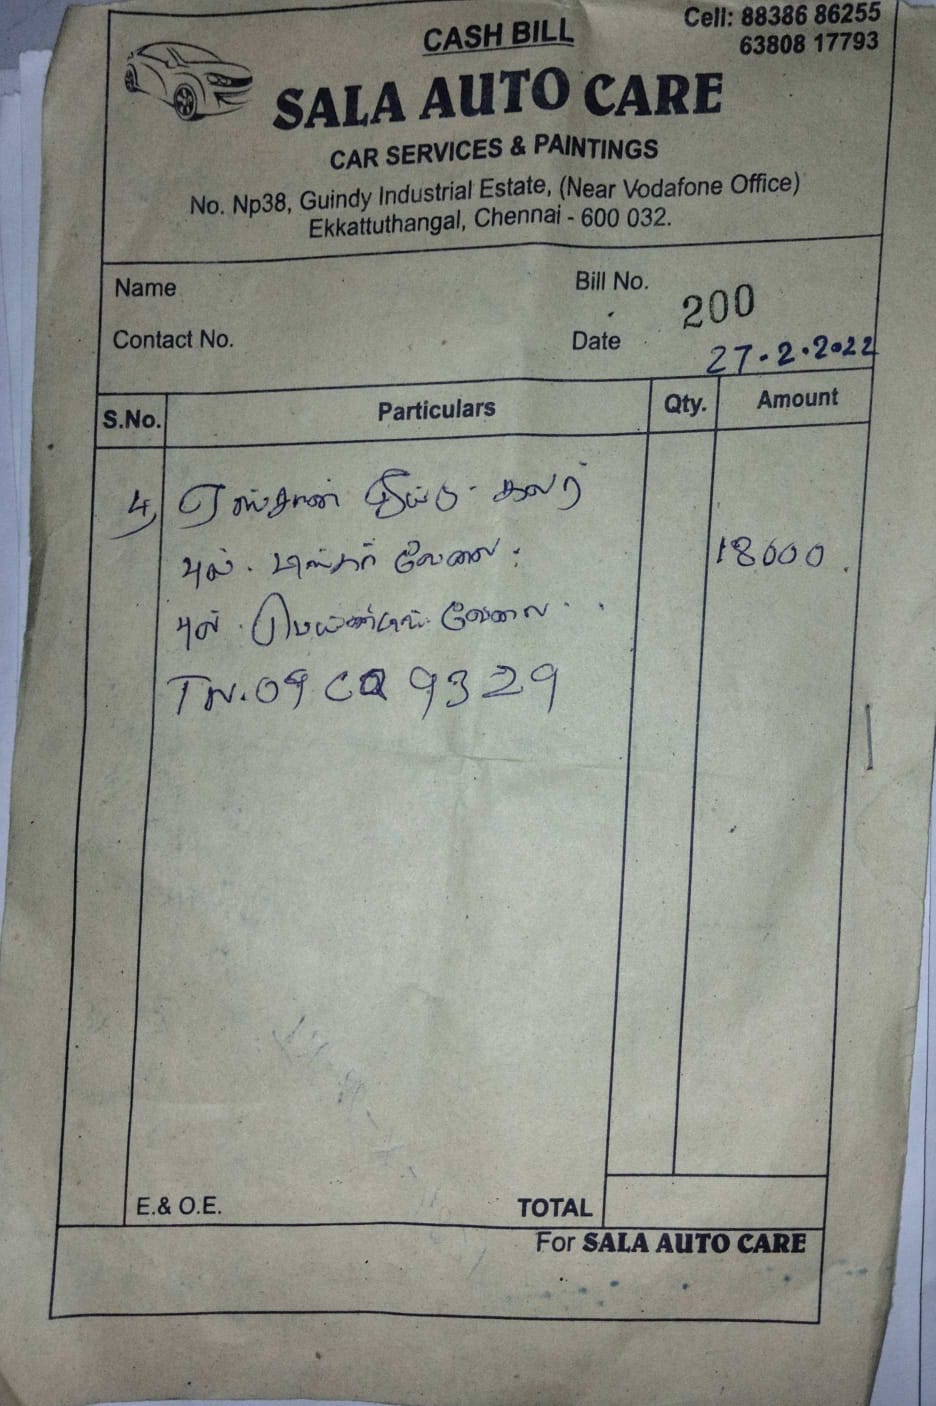 CASH BILL
Cell: 88386 86255
63808 17793
SALA AUTO CARE
CAR SERVICES & PAINTINGS
No. Np38, Guindy Industrial Estate, (Near Vodafone Office)
Ekkattuthangal, Chennai - 600 032.
Name
Bill No. 200
Contact No.
Date 27.2.2022
S.No. Particulars Qty. Amount
4, கலர்
புல். டிங்கர் வேலை. 18000
புல். பெய்ண்டிங். வேலை
TN.09 CQ 9329
E.& O.E. TOTAL
For SALA AUTO CARE